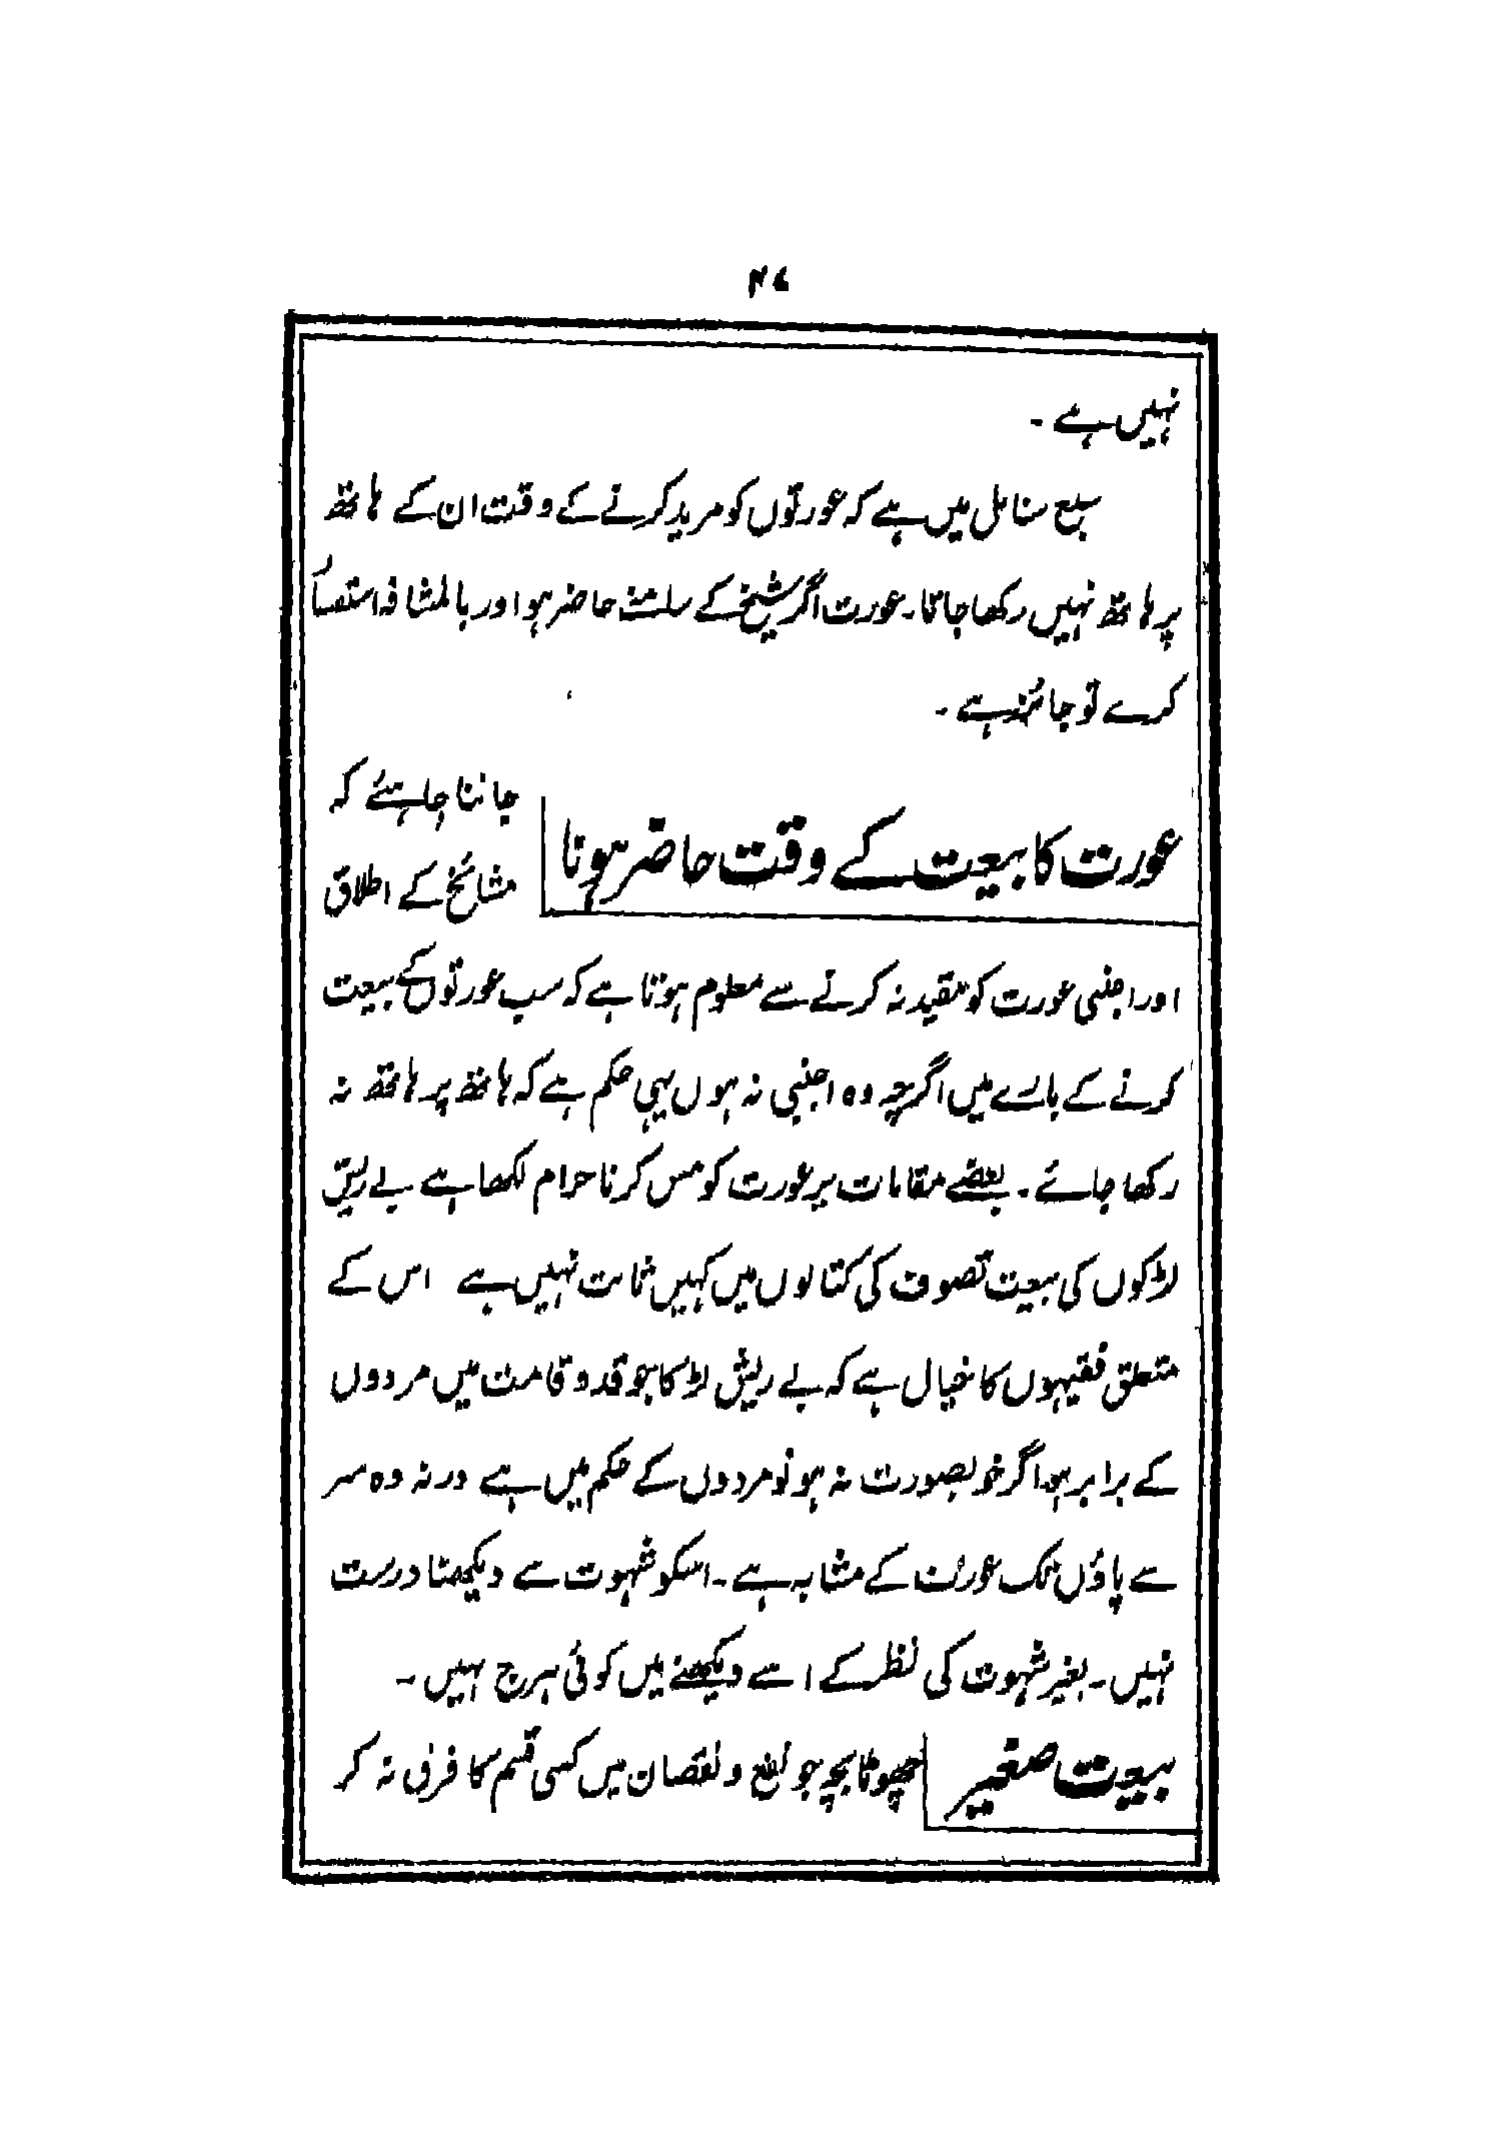 ۴۷
نہیں ہے ۔
سبع سنابل میں ہے کہ عورتوں کو مرید کرنے کے وقت ان کے ہاتھ
پر ہاتھ نہیں رکھا جاتا۔ عورت اگر شیخ کے سامنے حاضر ہو اور بالمشافہ
کرے تو جائز ہے ۔
عورت کا بیعت کے وقت حاضر ہونا
جاننا چاہئے کہ
مشائخ کے اطلاق
اور اجنبی عورت کو مقید نہ کرنے سے معلوم ہوتا ہے کہ سب عورتوں کے بیعت
کرنے کے بارے میں اگرچہ وہ اجنبی نہ ہوں یہی حکم ہے کہ ہاتھ پر ہاتھ نہ
رکھا جائے ۔ بعضے مقامات پر عورت کو مس کرنا حرام لکھا ہے بے ریش
لڑکوں کی بیعت تصوف کی کتابوں میں کہیں ثابت نہیں ہے اس کے
متعلق فقیہوں کا خیال ہے کہ بے ریش لڑکا جو قد و قامت میں مردوں
کے برابر ہو اگر خوبصورت نہ ہو تو مردوں کے حکم میں ہے ورنہ وہ سر
سے پاؤں تک عورت کے مشابہ ہے ۔ اسکو شہوت سے دیکھنا درست
نہیں ۔ بغیر شہوت کی نظر کے اسے دیکھنے میں کوئی ہرج نہیں ۔
بیعت صغیر
چھوٹا بچہ جو نفع و نقصان میں کسی قسم کا فرق نہ کر